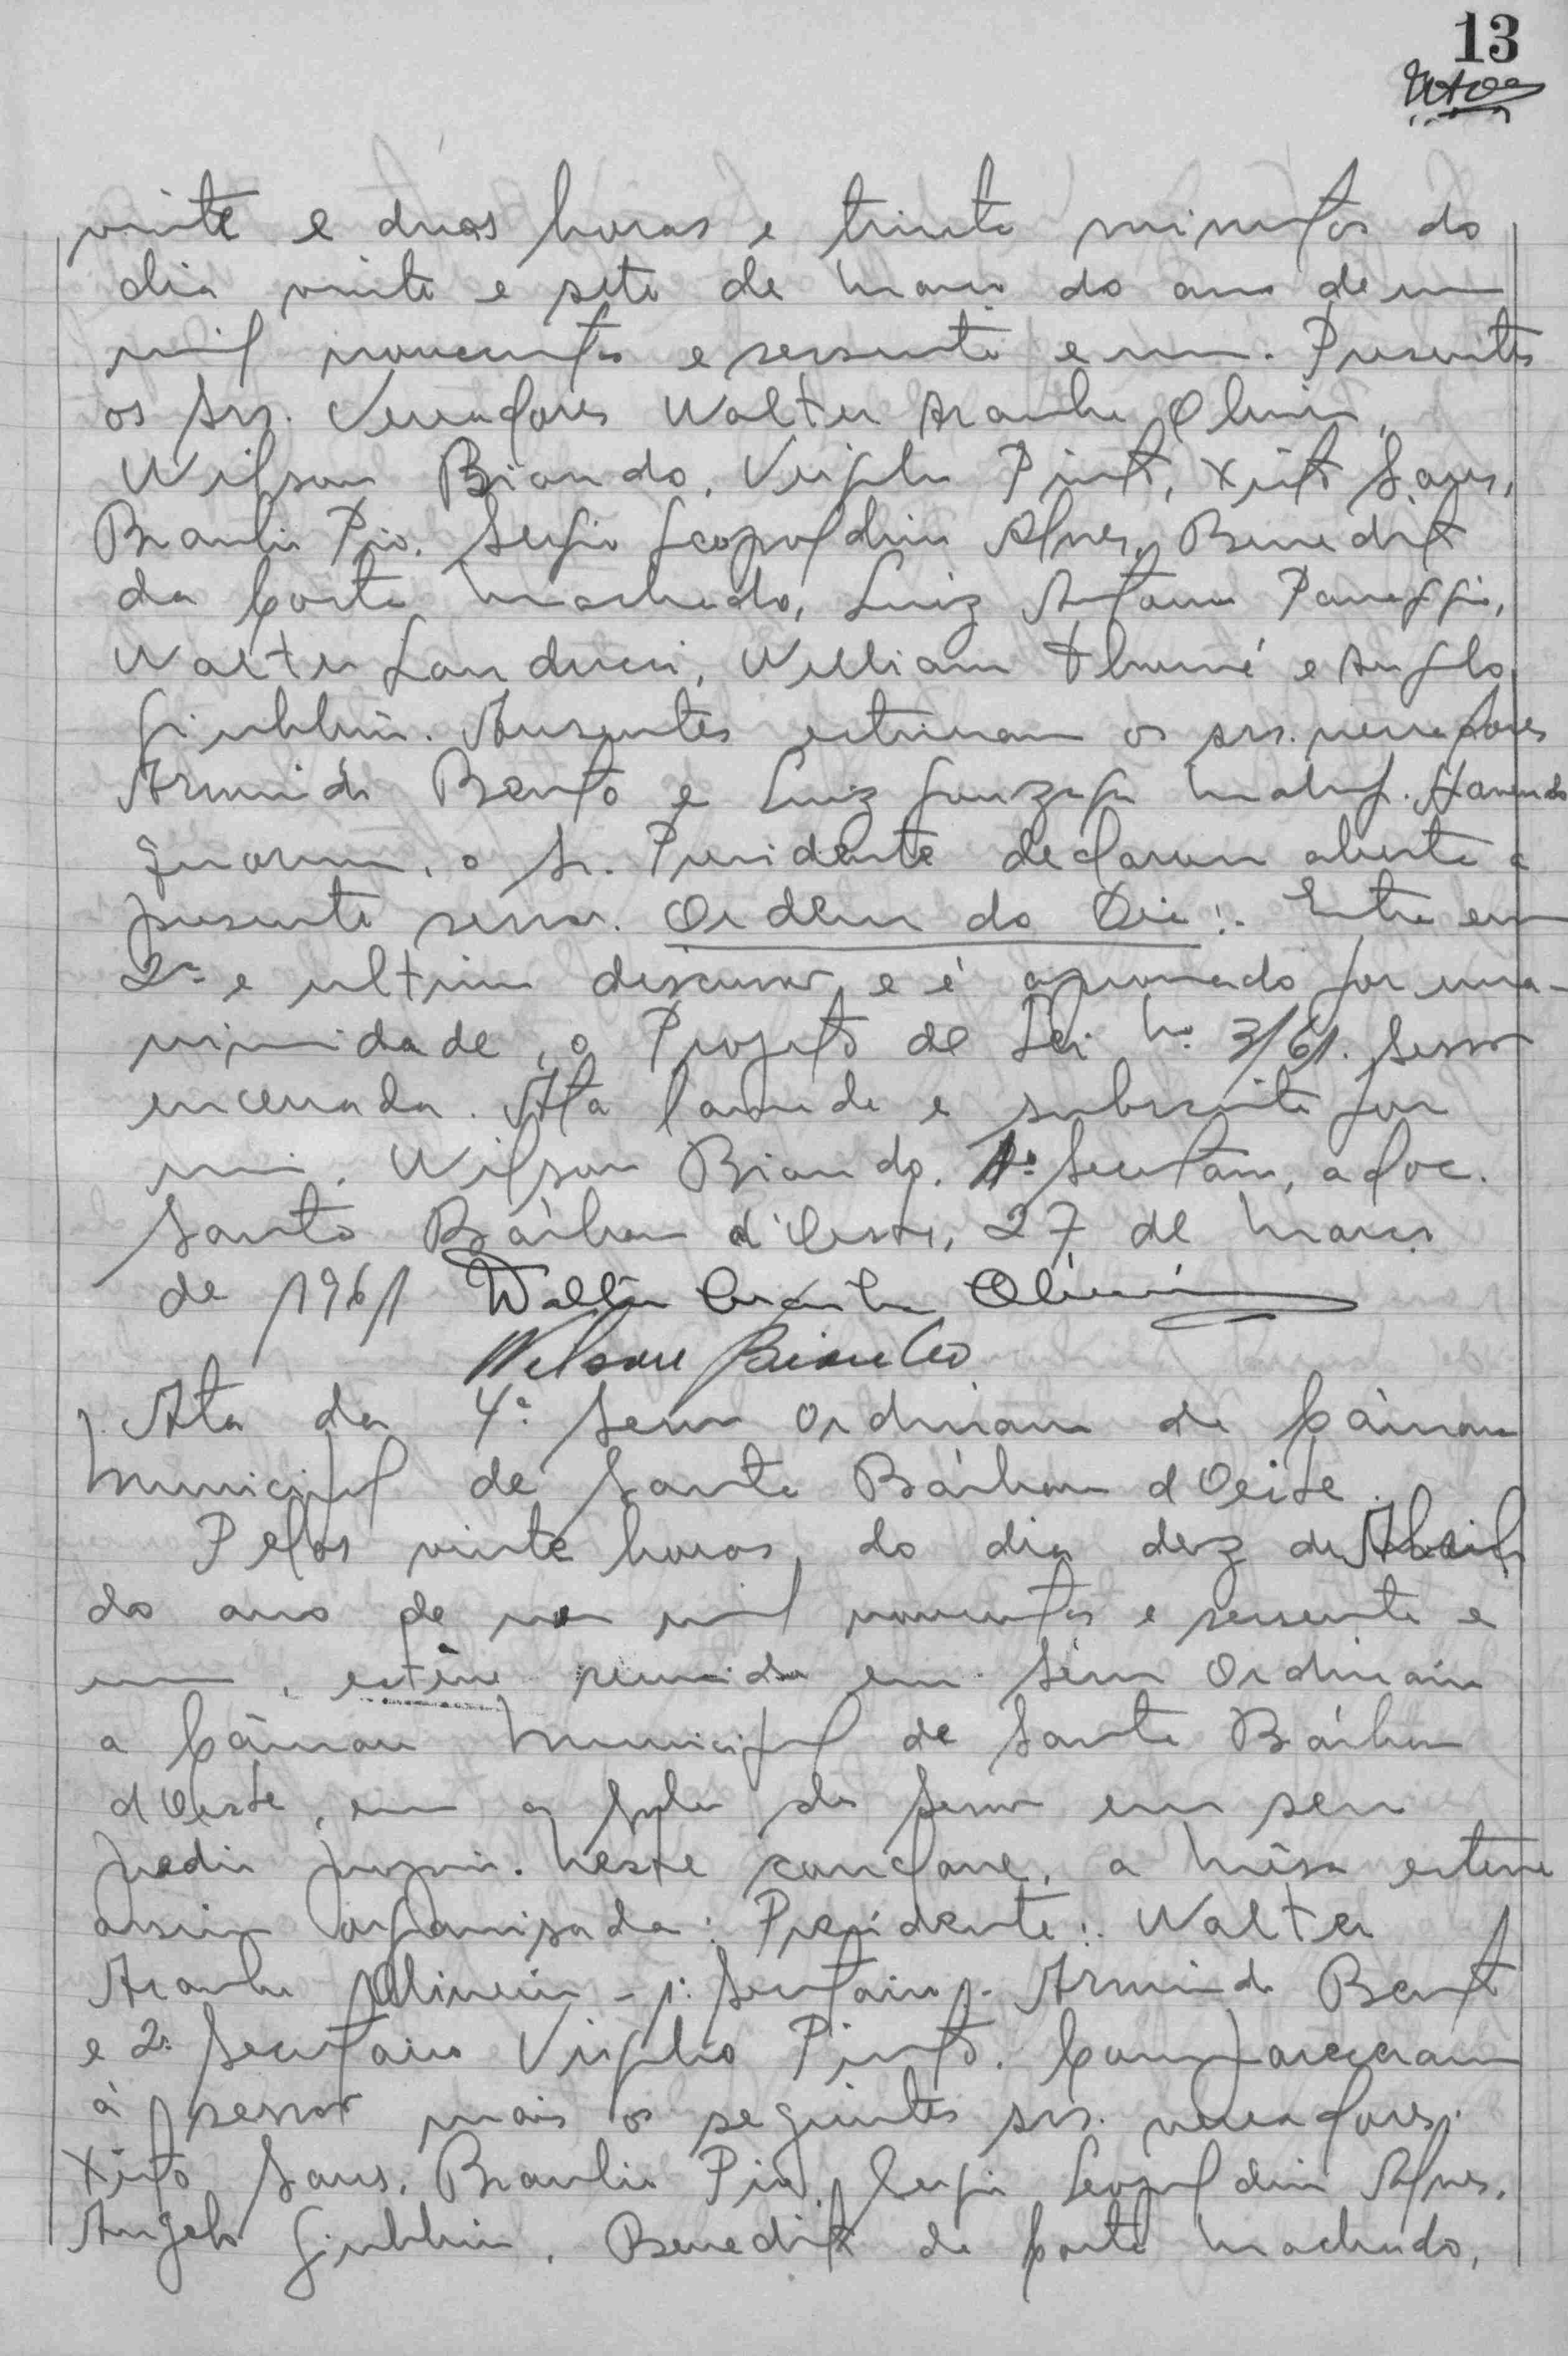 13
vinte e duas horas e trinta minutos do
dia vinte e sete de Março do ano de um
mil novecentos e sessenta e um. Presentes
os srs. Vereadores Walter Aranha Oliveira,
Wilson Biondo, Virgilio Pinto, Xisto Sans,
Braulio Pio, Sergio Leopoldino Alves, Benedito
da Costa Machado, Luiz Antonio Panaggio,
Walter Landucci, William Thomé e Angelo
Giubbina. Ausentes estiveram os srs. vereadores
Armindo Bento e Luiz Gonzaga Maluf. Havendo
quorum, o sr. Presidente declarou aberta a
presente sessão. Ordem do Dia:. Entra em
2ª e ultima discussão e é aprovado por una-
nimidade, o Projeto de Lei nº 3/61. Sessão
encerrada. Ata lavrada e subscrita por
mim, Wilson Biondo, 1º Secretario, adoc.
Santa Bárbara d'Oeste, 27 de Março
de 1961 Walter Aranha Oliveira
Wilson Biondo
Ata da 4ª Sessão Ordinaria da Câmara
Municipal de Santa Bárbara d'Oeste.
Pelas vinte horas, do dia dez de Abril
do ano de um mil novecentos e sessenta e
um, estêve reunida em Sessão Ordinária
a Câmara Municipal de Santa Bárbara
d'Oeste, em a sala da Sessão em seu
predio proprio. Neste conclave, a Mêsa esteve
assim organisada: Presidente:. Walter
Aranha Oliveira - 1º Secretairo:- Armindo Bento
e 2º Secretairo Virgilio Pinto. Compareceram
à sessão mais os seguintes srs. vereadores:
Xisto Sans, Braulio Pio, Sergio Leopoldino Alves,
Angelo Giubbina, Benedito da Costa Machado,